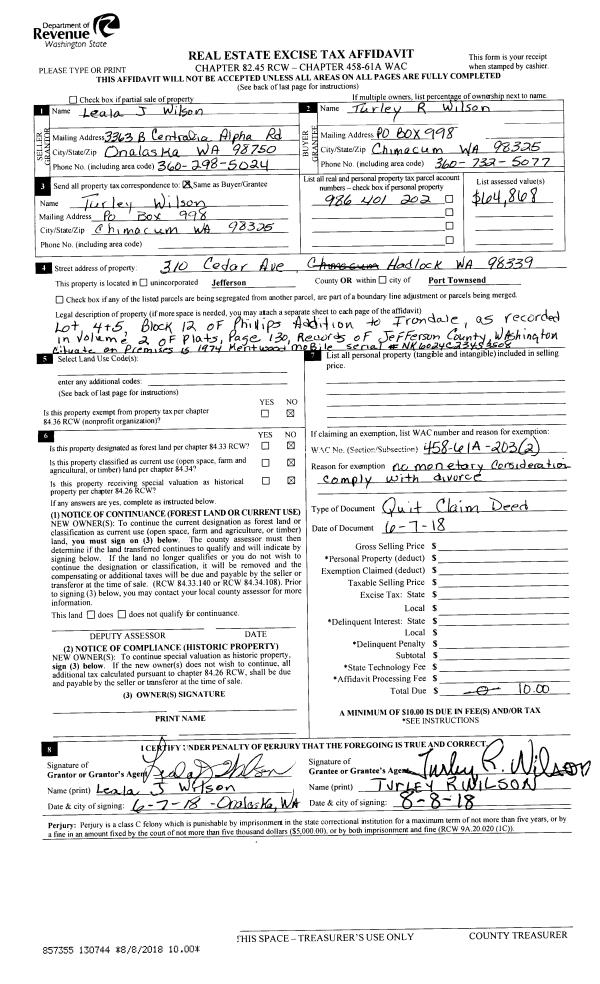 Department of
Revenue
Washington State
REAL ESTATE EXCISE TAX AFFIDAVIT
This form is your receipt
when stamped by cashier.
PLEASE TYPE OR PRINT
CHAPTER 82.45 RCW – CHAPTER 458-61A WAC
THIS AFFIDAVIT WILL NOT BE ACCEPTED UNLESS ALL AREAS ON ALL PAGES ARE FULLY COMPLETED
(See back of last page for instructions)
Check box if partial sale of property
If multiple owners, list percentage of ownership next to name.
1 Name Leala J Wilson
SELLER GRANTOR
Mailing Address 3363 B Centralia Alpha Rd
City/State/Zip Onalaska WA 98750
Phone No. (including area code) 360-298-5024
2 Name Turley R Wilson
BUYER GRANTEE
Mailing Address PO BOX 998
City/State/Zip Chimacum WA 98325
Phone No. (including area code) 360-732-5077
3 Send all property tax correspondence to: ☒ Same as Buyer/Grantee
Name Turley Wilson
Mailing Address PO Box 998
City/State/Zip Chimacum WA 98325
Phone No. (including area code)
List all real and personal property tax parcel account
numbers – check box if personal property
986 401 202
List assessed value(s)
$164,868
4 Street address of property: 310 Cedar Ave, Chimacum Hadlock WA 98339
This property is located in ☐ unincorporated Jefferson County OR within ☐ city of Port Townsend
☐ Check box if any of the listed parcels are being segregated from another parcel, are part of a boundary line adjustment or parcels being merged.
Legal description of property (if more space is needed, you may attach a separate sheet to each page of the affidavit)
Lot, 4+5, Block 12 of Phillips Addition to Irondale, as recorded
in Volume 2 of Plats, Page 130, Records of Jefferson County, Washington
Cituate on Premises is 1974 Kentwood mobile serial #
5 Select Land Use Code(s):
enter any additional codes:
(See back of last page for instructions)
YES NO
Is this property exempt from property tax per chapter
84.36 RCW (nonprofit organization)? ☐ ☒
6 YES NO
Is this property designated as forest land per chapter 84.33 RCW? ☐ ☒
Is this property classified as current use (open space, farm and
agricultural, or timber) land per chapter 84.34? ☐ ☒
Is this property receiving special valuation as historical
property per chapter 84.26 RCW? ☐ ☒
If any answers are yes, complete as instructed below.
(1) NOTICE OF CONTINUANCE (FOREST LAND OR CURRENT USE)
NEW OWNER(S): To continue the current designation as forest land or
classification as current use (open space, farm and agriculture, or timber)
land, you must sign on (3) below. The county assessor must then
determine if the land transferred continues to qualify and will indicate by
signing below. If the land no longer qualifies or you do not wish to
continue the designation or classification, it will be removed and the
compensating or additional taxes will be due and payable by the seller or
transferor at the time of sale. (RCW 84.33.140 or RCW 84.34.108). Prior
to signing (3) below, you may contact your local county assessor for more
information.
This land ☐ does ☐ does not qualify for continuance.
DEPUTY ASSESSOR DATE
(2) NOTICE OF COMPLIANCE (HISTORIC PROPERTY)
NEW OWNER(S): To continue special valuation as historic property,
sign (3) below. If the new owner(s) does not wish to continue, all
additional tax calculated pursuant to chapter 84.26 RCW, shall be due
and payable by the seller or transferor at the time of sale.
(3) OWNER(S) SIGNATURE
PRINT NAME
7 List all personal property (tangible and intangible) included in selling
price.
If claiming an exemption, list WAC number and reason for exemption:
WAC No. (Section/Subsection) 458-61A-203(2)
Reason for exemption no monetary consideration
comply with divorce
Type of Document Quit Claim Deed
Date of Document 6-7-18
Gross Selling Price $
*Personal Property (deduct) $
Exemption Claimed (deduct) $
Taxable Selling Price $
Excise Tax: State $
Local $
*Delinquent Interest: State $
Local $
*Delinquent Penalty $
Subtotal $
*State Technology Fee $
*Affidavit Processing Fee $
Total Due $ 0 10.00
A MINIMUM OF $10.00 IS DUE IN FEE(S) AND/OR TAX
*SEE INSTRUCTIONS
8 I CERTIFY UNDER PENALTY OF PERJURY THAT THE FOREGOING IS TRUE AND CORRECT.
Signature of
Grantor or Grantor's Agent Leala J Wilson
Name (print) Leala J Wilson
Date & city of signing: 6-7-18 - Onalaska, WA
Signature of
Grantee or Grantee's Agent Turley R. Wilson
Name (print) TURLEY R WILSON
Date & city of signing: 8-8-18
Perjury: Perjury is a class C felony which is punishable by imprisonment in the state correctional institution for a maximum term of not more than five years, or by
a fine in an amount fixed by the court of not more than five thousand dollars ($5,000.00), or by both imprisonment and fine (RCW 9A.20.020 (1C)).
THIS SPACE – TREASURER'S USE ONLY COUNTY TREASURER
857355 130744 *8/8/2018 10.00*